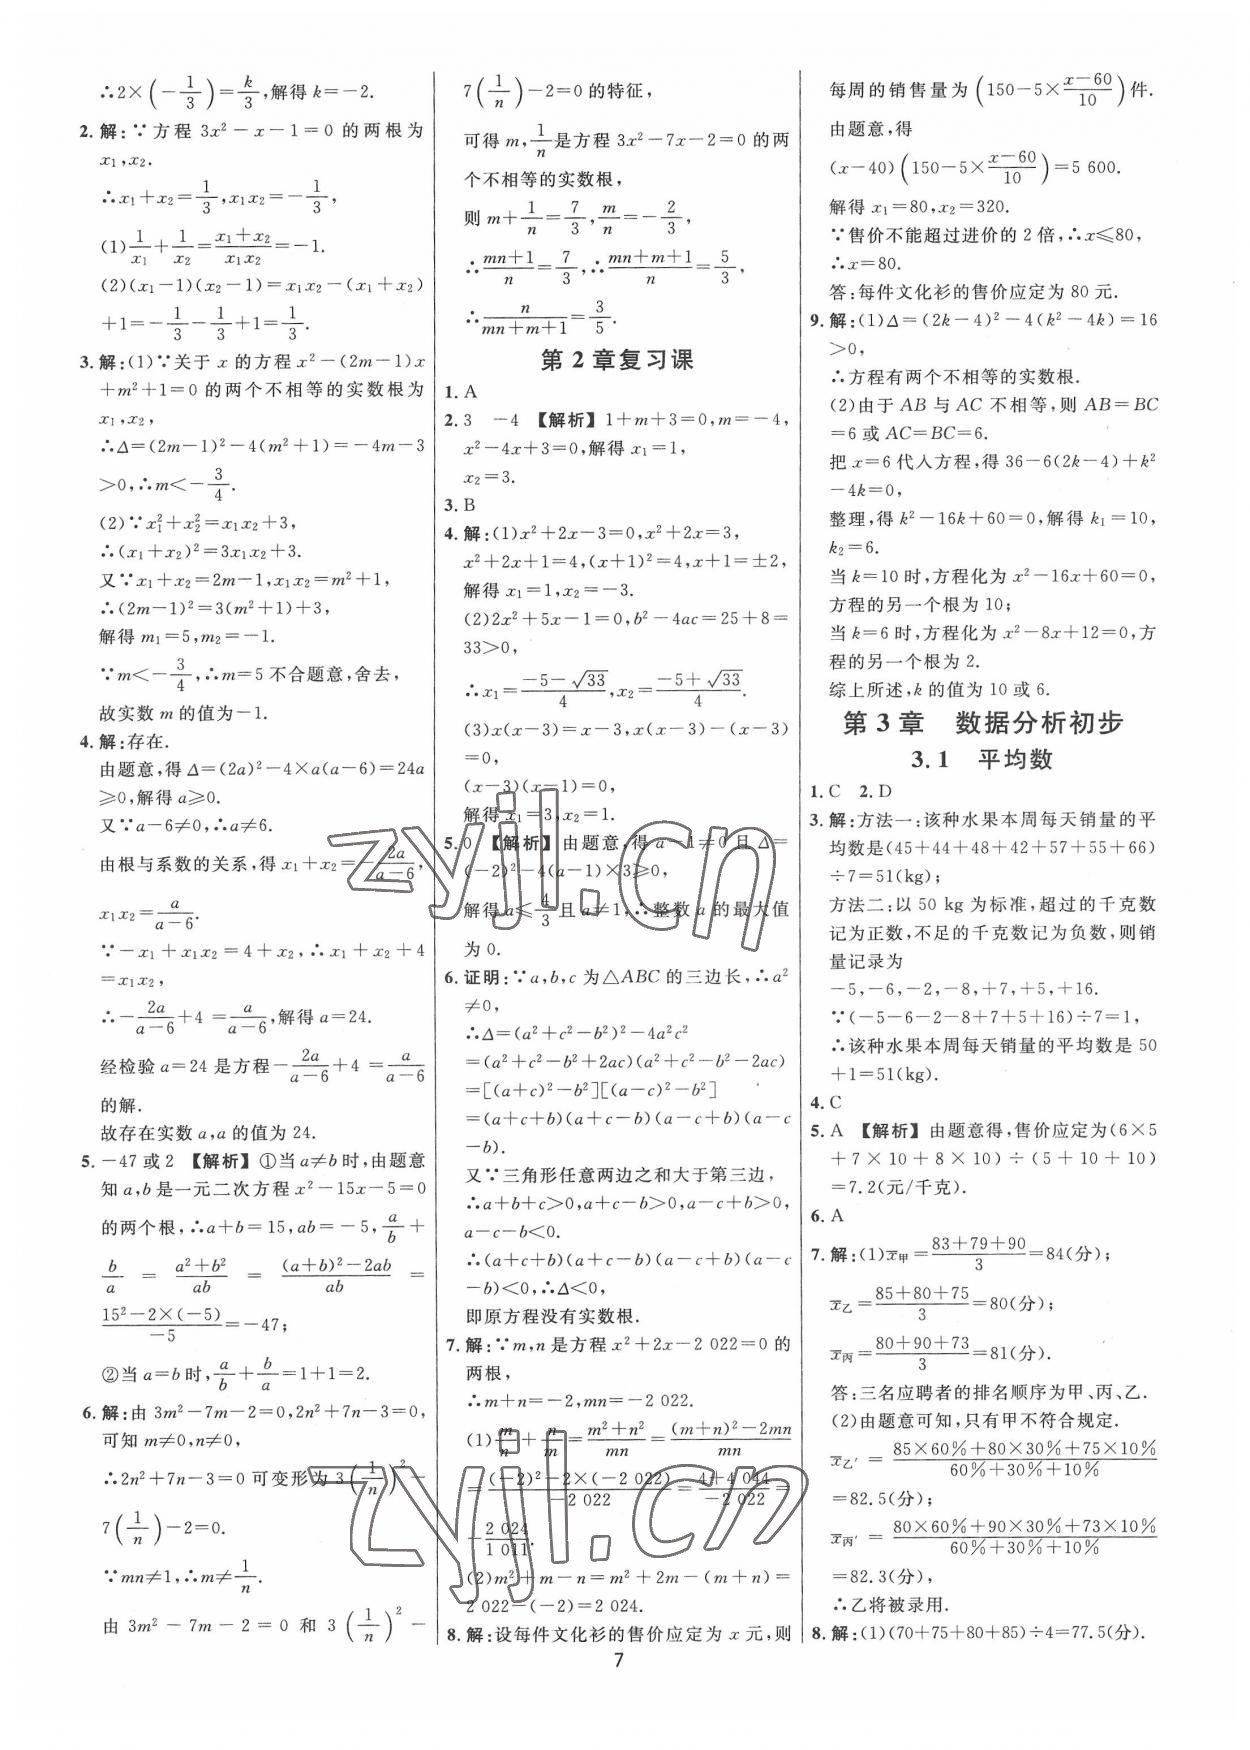 ∴2×(-1/3)=k/3,解得 k=-2.
2. 解:∵方程 3x²-x-1=0 的两根为
x₁,x₂.
∴x₁+x₂=1/3,x₁x₂=-1/3,
(1)1/x₁+1/x₂=(x₁+x₂)/(x₁x₂)=-1.
(2)(x₁-1)(x₂-1)=x₁x₂-(x₁+x₂)
+1=-1/3-1/3+1=1/3.
3. 解:(1)∵关于 x 的方程 x²-(2m-1)x
+m²+1=0 的两个不相等的实数根为
x₁,x₂,
∴Δ=(2m-1)²-4(m²+1)=-4m-3
>0,∴m<-3/4.
(2)∵x₁²+x₂²=x₁x₂+3,
∴(x₁+x₂)²=3x₁x₂+3.
又∵x₁+x₂=2m-1,x₁x₂=m²+1,
∴(2m-1)²=3(m²+1)+3,
解得 m₁=5,m₂=-1.
∵m<-3/4,∴m=5 不合题意,舍去,
故实数 m 的值为-1.
4. 解:存在.
由题意,得 Δ=(2a)²-4×a(a-6)=24a
≥0,解得 a≥0.
又∵a-6≠0,∴a≠6.
由根与系数的关系,得 x₁+x₂=-2a/(a-6),
x₁x₂=a/(a-6).
∵-x₁+x₁x₂=4+x₂,∴x₁+x₂+4
=x₁x₂,
∴-2a/(a-6)+4=a/(a-6),解得 a=24.
经检验 a=24 是方程-2a/(a-6)+4=a/(a-6)
的解.
故存在实数 a,a 的值为 24.
5. -47 或 2 【解析】①当 a≠b 时,由题意
知 a,b 是一元二次方程 x²-15x-5=0
的两个根,∴a+b=15,ab=-5,a/b+
b/a=(a²+b²)/ab=((a+b)²-2ab)/ab=
(15²-2×(-5))/(-5)=-47;
②当 a=b 时,a/b+b/a=1+1=2.
6. 解:由 3m²-7m-2=0,2n²+7n-3=0,
可知 m≠0,n≠0,
∴2n²+7n-3=0 可变形为 3(1/n)²-
7(1/n)-2=0.
∵mn≠1,∴m≠1/n.
由 3m²-7m-2=0 和 3(1/n)²-
7(1/n)-2=0 的特征,
可得 m,1/n是方程 3x²-7x-2=0 的两
个不相等的实数根,
则 m+1/n=7/3,m/n=-2/3,
∴(mn+1)/n=7/3,∴(mn+m+1)/n=5/3,
∴n/(mn+m+1)=3/5.
第 2 章复习课
1. A
2. 3 -4 【解析】1+m+3=0,m=-4,
x²-4x+3=0,解得 x₁=1,
x₂=3.
3. B
4. 解:(1)x²+2x-3=0,x²+2x=3,
x²+2x+1=4,(x+1)²=4,x+1=±2,
解得 x₁=1,x₂=-3.
(2)2x²+5x-1=0,b²-4ac=25+8=
33>0,
∴x₁=(-5-√33)/4,x₂=(-5+√33)/4.
(3)x(x-3)=x-3,x(x-3)-(x-3)
=0,
(x-3)(x-1)=0,
解得 x₁=3,x₂=1.
5. 0 【解析】由题意,得 a-1≠0 且 Δ=
(-2)²-4(a-1)×3≥0,
解得 a≤4/3且 a≠1,∴整数 a 的最大值
为 0.
6. 证明:∵a,b,c 为△ABC 的三边长,∴a²
≠0,
∴Δ=(a²+c²-b²)²-4a²c²
=(a²+c²-b²+2ac)(a²+c²-b²-2ac)
=[(a+c)²-b²][(a-c)²-b²]
=(a+c+b)(a+c-b)(a-c+b)(a-c
-b).
又∵三角形任意两边之和大于第三边,
∴a+b+c>0,a+c-b>0,a-c+b>0,
a-c-b<0.
∴(a+c+b)(a+c-b)(a-c+b)(a-c
-b)<0,∴Δ<0,
即原方程没有实数根.
7. 解:∵m,n 是方程 x²+2x-2 022=0 的
两根,
∴m+n=-2,mn=-2 022.
(1)m/n+n/m=(m²+n²)/mn=((m+n)²-2mn)/mn
=((-2)²-2×(-2 022))/(-2 022)=(4+4 044)/(-2 022)=
-2 024/1 011.
(2)m²+m-n=m²+2m-(m+n)=
2 022-(-2)=2 024.
8. 解:设每件文化衫的售价应定为 x 元,则
每周的销售量为(150-5×(x-60)/10)件.
由题意,得
(x-40)(150-5×(x-60)/10)=5 600.
解得 x₁=80,x₂=320.
∵售价不能超过进价的 2 倍,∴x≤80,
∴x=80.
答:每件文化衫的售价应定为 80 元.
9. 解:(1)Δ=(2k-4)²-4(k²-4k)=16
>0,
∴方程有两个不相等的实数根.
(2)由于 AB 与 AC 不相等,则 AB=BC
=6 或 AC=BC=6.
把 x=6 代入方程,得 36-6(2k-4)+k²
-4k=0,
整理,得 k²-16k+60=0,解得 k₁=10,
k₂=6.
当 k=10 时,方程化为 x²-16x+60=0,
方程的另一个根为 10;
当 k=6 时,方程化为 x²-8x+12=0,方
程的另一个根为 2.
综上所述,k 的值为 10 或 6.
第 3 章 数据分析初步
3.1 平均数
1. C 2. D
3. 解:方法一:该种水果本周每天销量的平
均数是(45+44+48+42+57+55+66)
÷7=51(kg);
方法二:以 50 kg 为标准,超过的千克数
记为正数,不足的千克数记为负数,则销
量记录为
-5,-6,-2,-8,+7,+5,+16.
∵(-5-6-2-8+7+5+16)÷7=1,
∴该种水果本周每天销量的平均数是 50
+1=51(kg).
4. C
5. A 【解析】由题意得,售价应定为(6×5
+7×10+8×10)÷(5+10+10)
=7.2(元/千克).
6. A
7. 解:(1)x̄甲=(83+79+90)/3=84(分);
x̄乙=(85+80+75)/3=80(分);
x̄丙=(80+90+73)/3=81(分).
答:三名应聘者的排名顺序为甲、丙、乙.
(2)由题意可知,只有甲不符合规定.
x̄乙′=(85×60%+80×30%+75×10%)/(60%+30%+10%)
=82.5(分);
x̄丙′=(80×60%+90×30%+73×10%)/(60%+30%+10%)
=82.3(分),
∴乙将被录用.
8. 解:(1)(70+75+80+85)÷4=77.5(分).
7
zyjl.cn
zyjl.cn